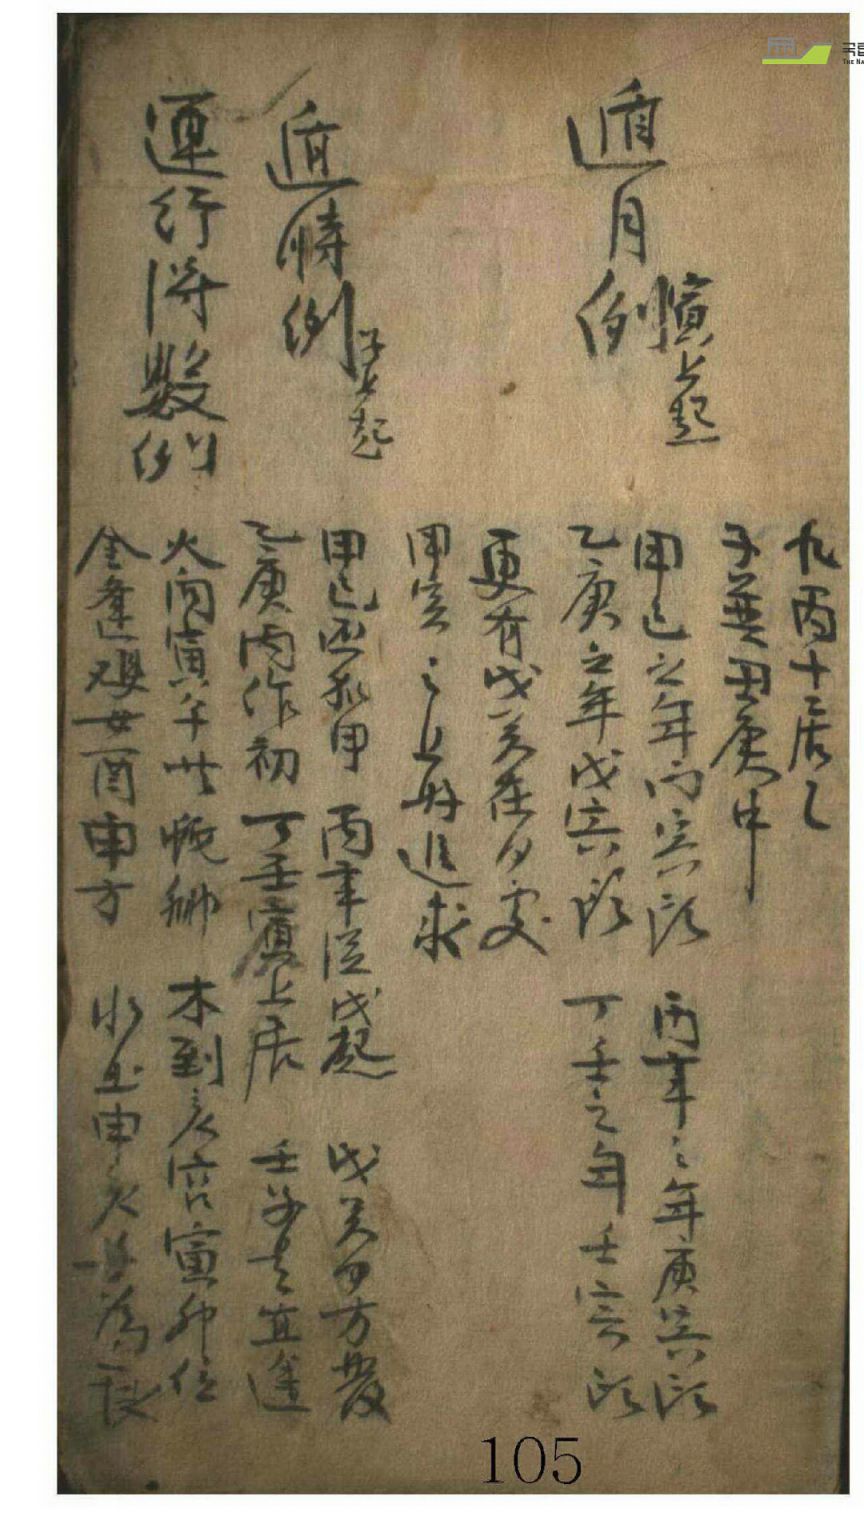 九丙十二居乙
子癸丑庚申
遁月例 寅上起
甲己之年丙寅頭 丙辛之年庚寅頭
乙庚之年戊寅頭 丁壬之年壬寅頭
更有戊癸在何處
甲寅之上好追求
遁時例 子上起
甲己還加甲 丙辛從戊起 戊癸何方發
乙庚丙作初 丁壬庚上居 壬子是直途
運行得數例
火向寅午 卯 木到亥宮寅卯位
金逢 酉申方 水土申亥 為
105
THE NA